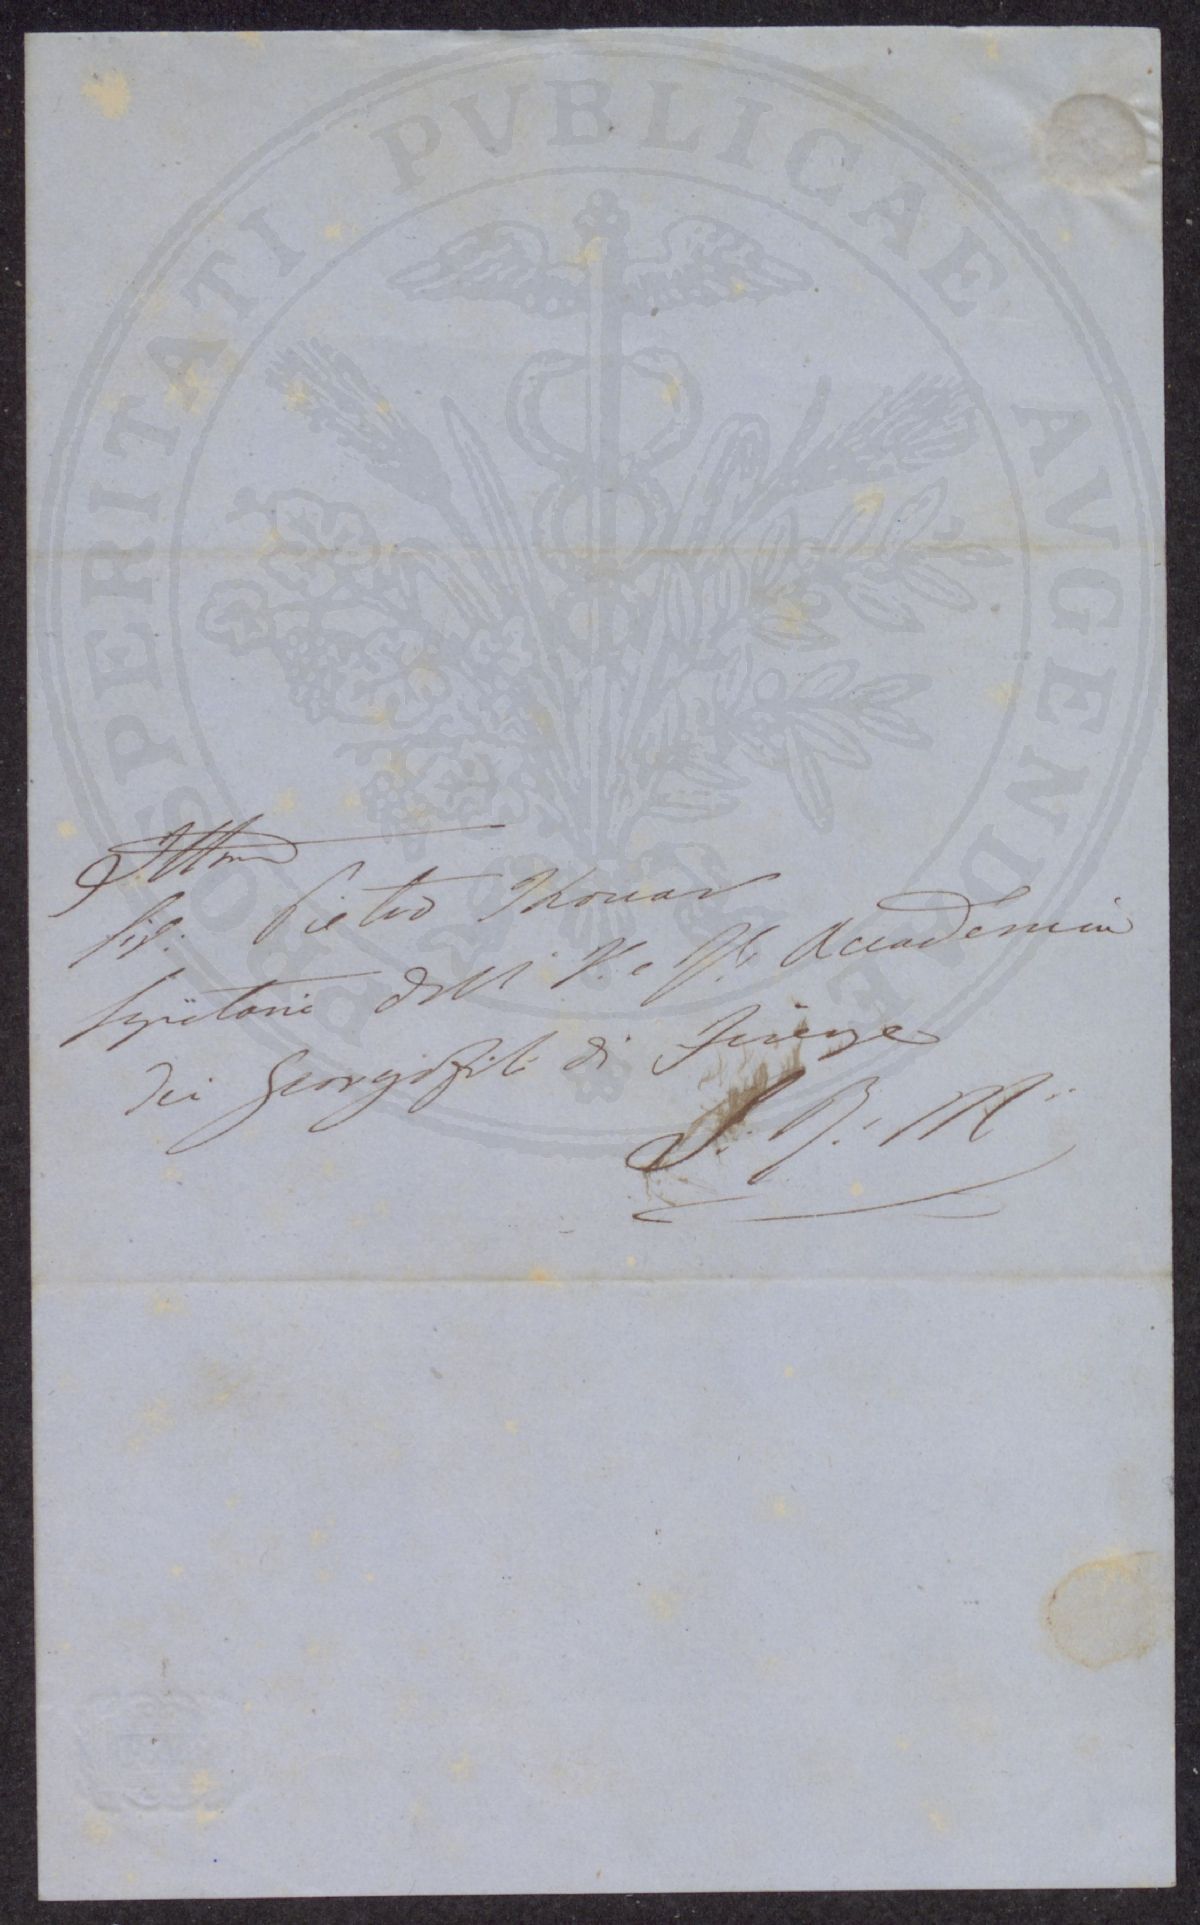 PROSPERITATI PVBLICAE AVGENDAE
Illmo
Sig. Pietro Thouar
Segretario dell' I. e R. Accademia
dei Georgofili di Firenze
S. R. M.